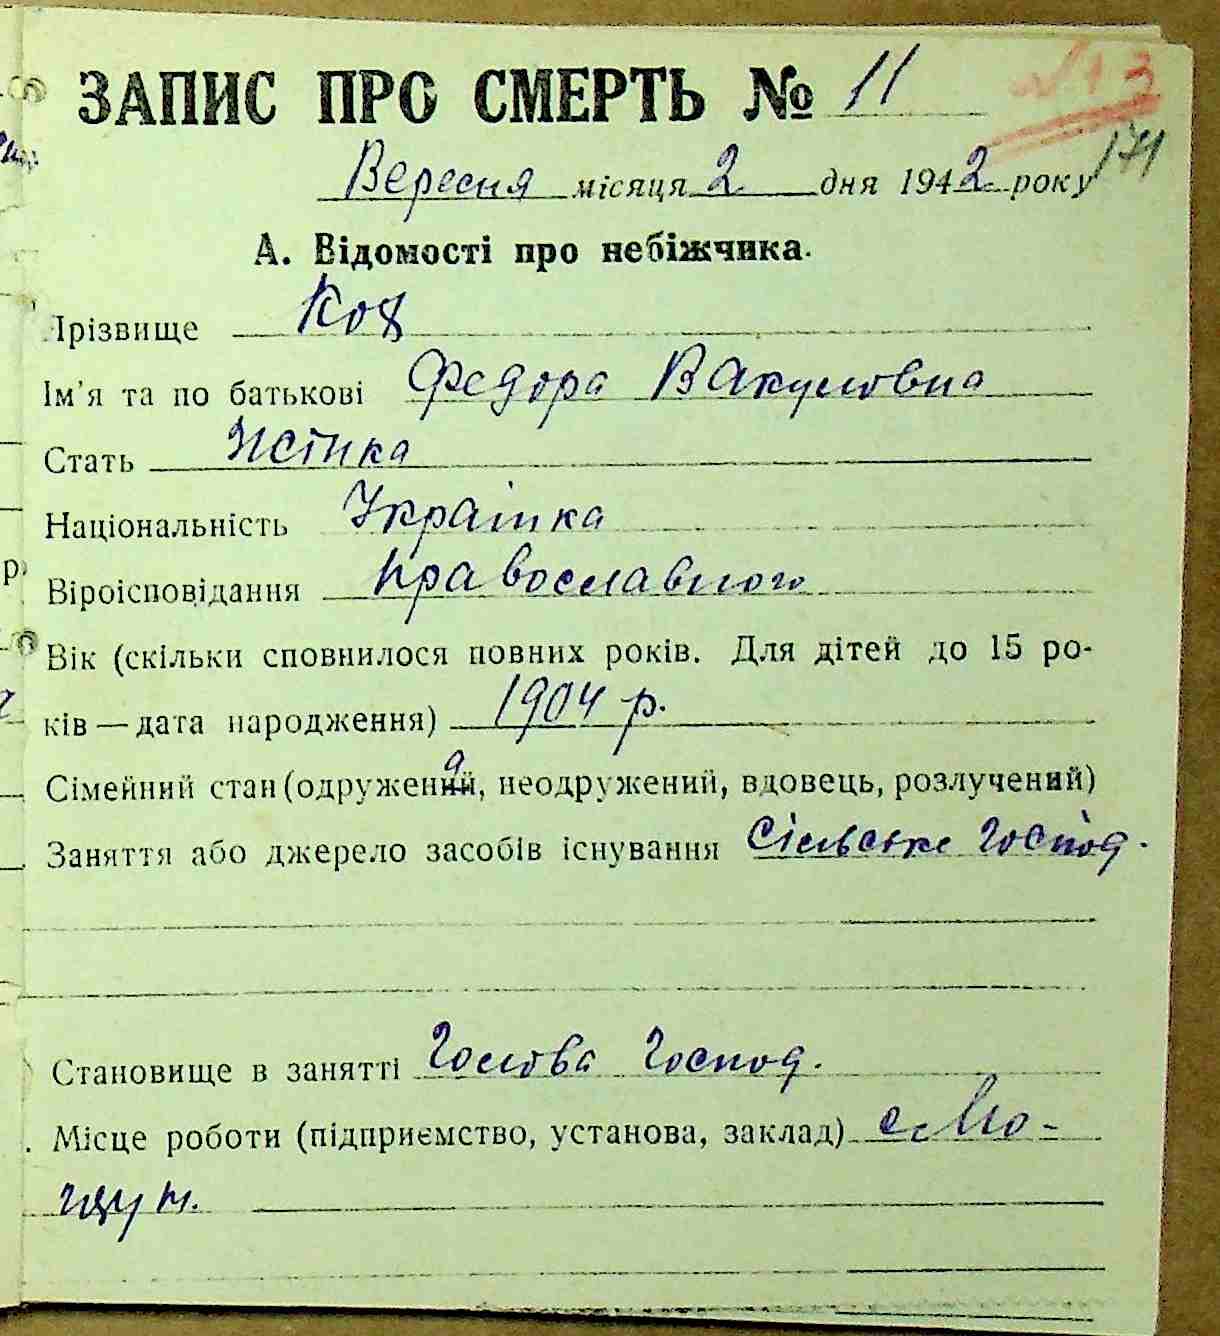 ЗАПИС ПРО СМЕРТЬ № 11
№13
171
Вересня місяця 2 дня 1942 року
А. Відомості про небіжчика.
Прізвище Коц
Ім'я та по батькові Федора Вакуловна
Стать Жінка
Національність Українка
Віроісповідання православного
Вік (скільки сповнилося повних років. Для дітей до 15 ро-
ків — дата народження) 1904 р.
Сімейний стан (одружена, неодружений, вдовець, розлучений)
Заняття або джерело засобів існування Сільське господ.
Становище в занятті Голова Господ.
Місце роботи (підприємство, установа, заклад) с Мо-
щун.